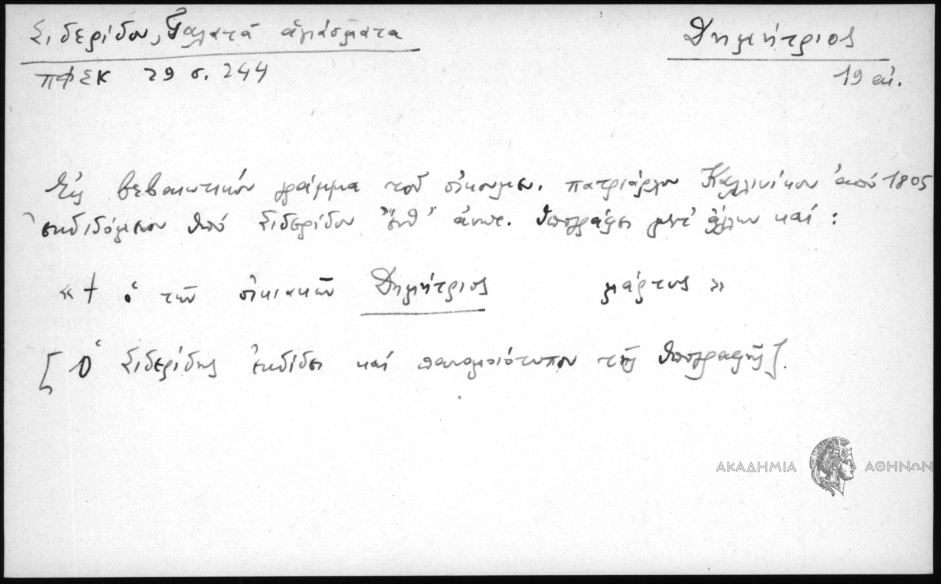 Σιδερίδου, Γαλατᾶ ἁγιάσματα
Δημήτριος
ΠΦΣΚ 29 σ. 244
19 αἰ.
Εἰς βεβαιωτικὸν γράμμα τοῦ οἰκουμεν. πατριάρχου Καλλινίκου ἀπὸ 1805
ἐκδιδόμενον ὑπὸ Σιδερίδου ἔνθ' ἀνωτ. ὑπογράφει μετ' ἄλλων καί :
« † ὁ τῶν οἰκιακῶν Δημήτριος μάρτυς »
[ Ὁ Σιδερίδης ἐκδίδει καὶ πανομοιότυπον τῆς ὑπογραφῆς].
ΑΚΑΔΗΜΙΑ ΑΘΗΝΩΝ